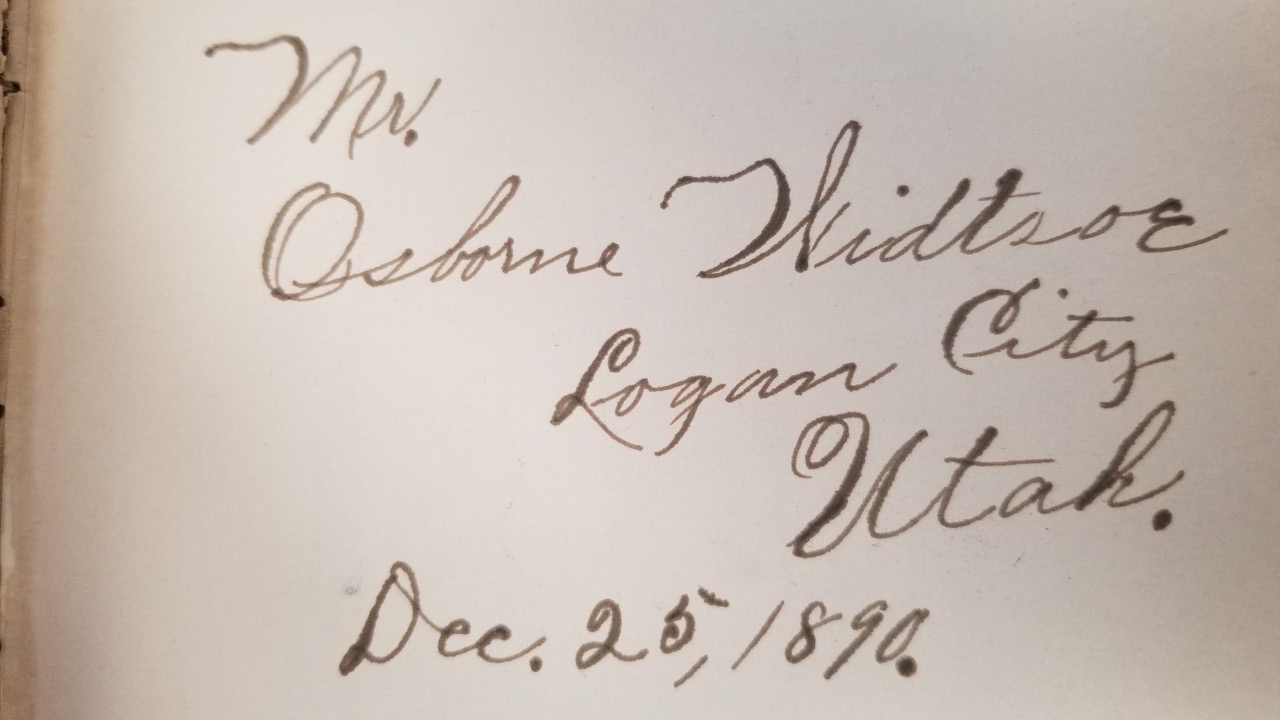 Mr.
Osborne Widtsoe
Logan City
Utah.
Dec. 25, 1890.